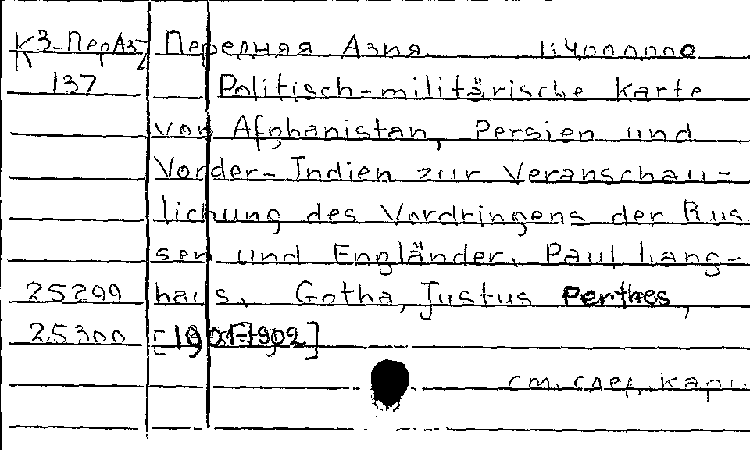 К3-ПерАз Передняя Азия 1:4000000
137 Politisch-militärische Karte
von Afghanistan, Persien und
Vorder-Indien zur Veranschau-
lichung des Vordringens der Rus
sen und Engländer. Paul Lang-
25299 hans. Gotha, Justus Perthes,
25300 [1901-1902]
см. след. карт